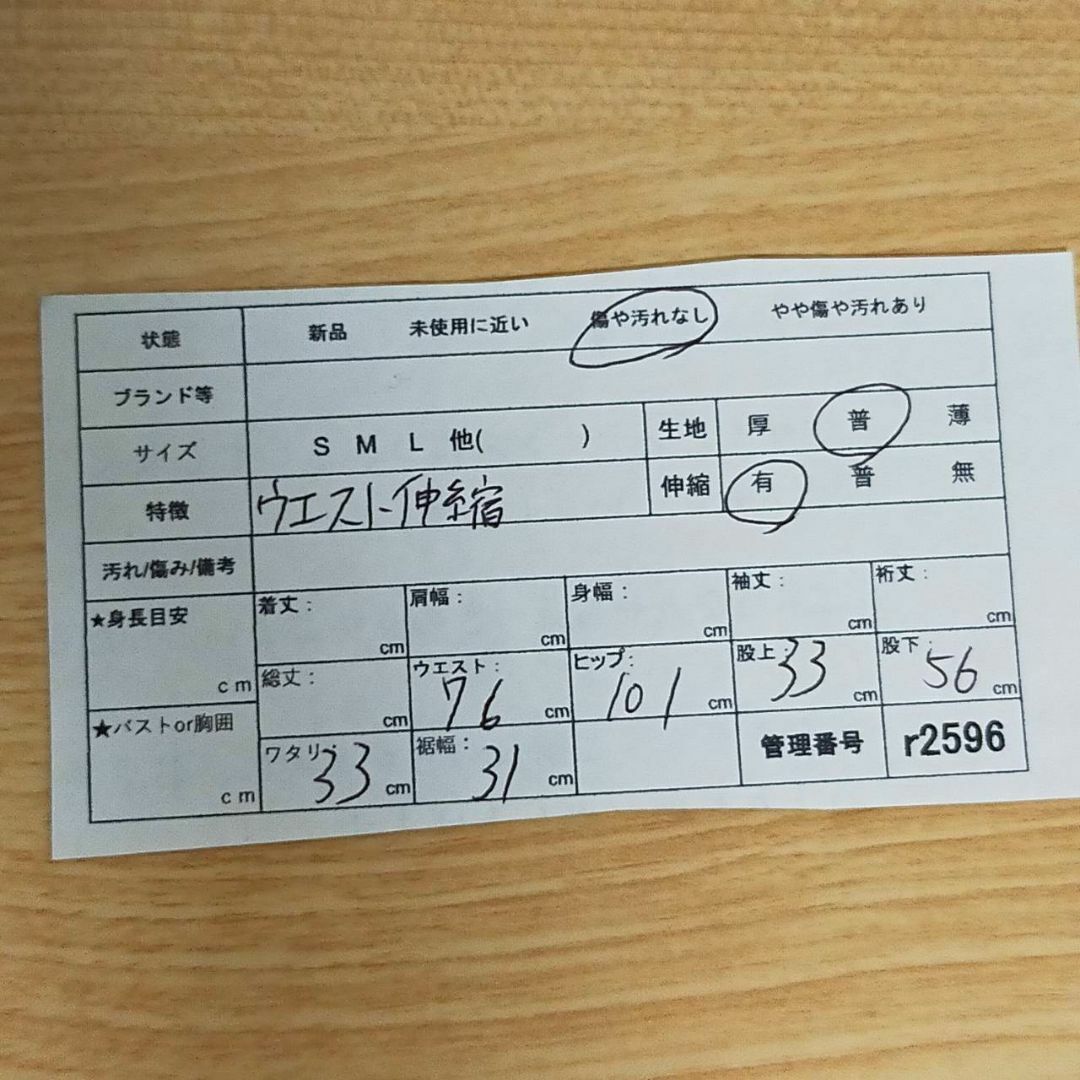 状態 新品 未使用に近い 傷や汚れなし やや傷や汚れあり
ブランド等
サイズ S M L 他( ) 生地 厚 普 薄
特徴 ウエスト伸縮 伸縮 有 普 無
汚れ/傷み/備考
★身長目安 cm 着丈: cm 肩幅: cm 身幅: cm 袖丈: cm 裄丈: cm
総丈: cm ウエスト: 76 cm ヒップ: 101 cm 股上: 33 cm 股下: 56 cm
★バストor胸囲 cm ワタリ: 33 cm 裾幅: 31 cm 管理番号 r2596